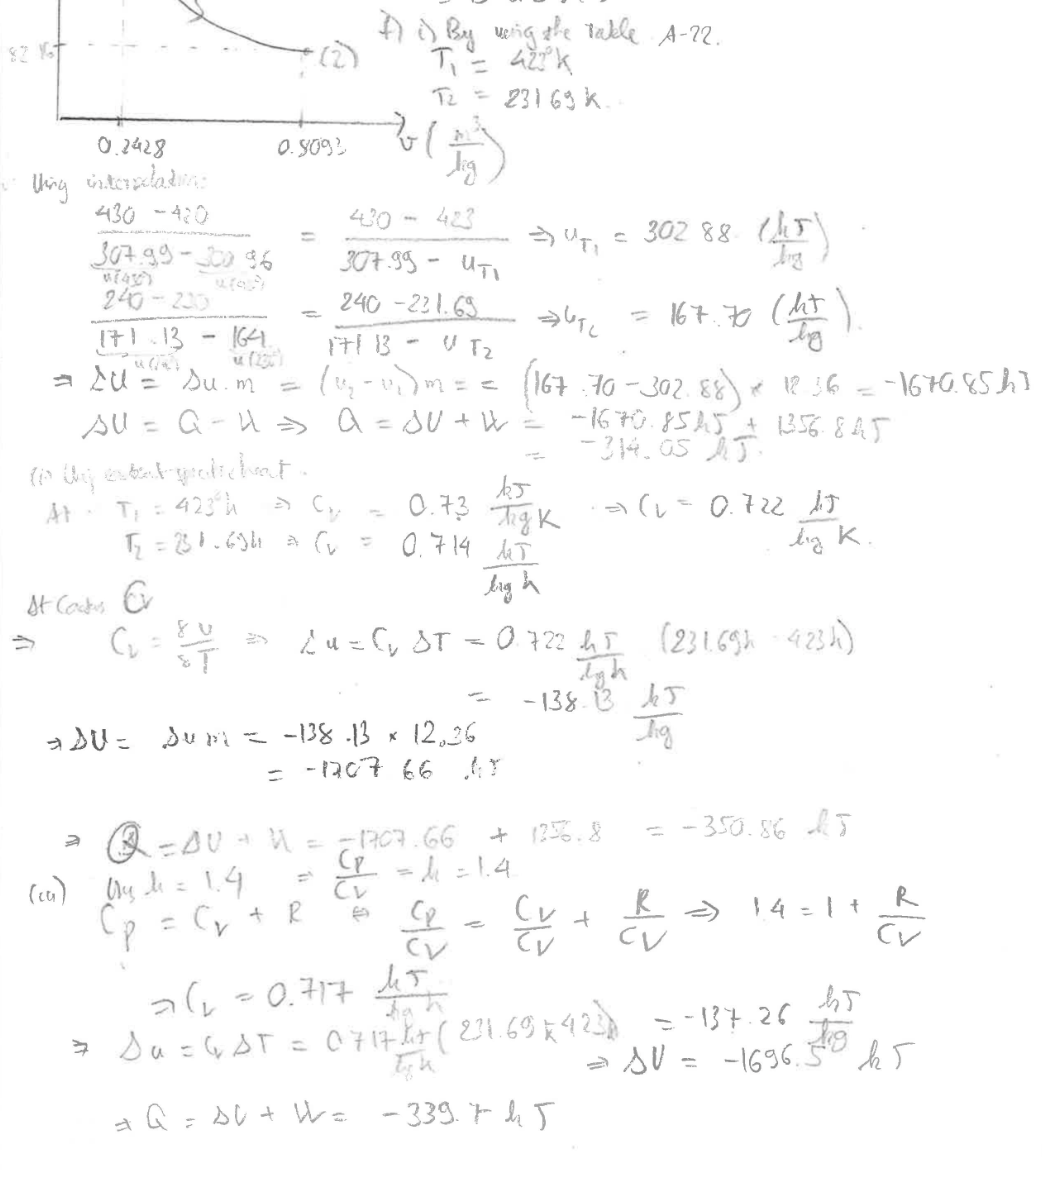 f) i) By using the Table A-22.
T₁ = 423°K
82 (2)
T₂ = 231.69 K.
0.2428 0.8093 v (m³/kg)
Using interpolation:
(430 - 420)/(307.99 - 300.96) = (430 - 423)/(307.99 - u_T₁) ⇒ u_T₁ = 302.88 (kJ/kg)
(240 - 230)/(171.13 - 164) = (240 - 231.69)/(171.13 - u_T₂) ⇒ u_T₂ = 167.70 (kJ/kg).
⇒ ΔU = Δu.m = (u₂ - u₁)m = = (167.70 - 302.88) × 12.36 = -1670.85 kJ
ΔU = Q - W ⇒ Q = ΔU + W = -1670.85 kJ + 1356.8 kJ
= -314.05 kJ.
At T₁ = 423°k ⇒ Cv = 0.73 kJ/kg K ⇒ Cv = 0.722 kJ/kg K.
T₂ = 231.69k ⇒ Cv = 0.714 kJ/kg k
At Cv
⇒ Cv = δu/δT ⇒ Δu = Cv ΔT = 0.722 kJ/kg k (231.69k - 423k)
= -138.13 kJ/kg
⇒ ΔU = Δu m = -138.13 × 12.36
= -1707.66 kJ
⇒ Q = ΔU + W = -1707.66 + 1356.8 = -350.86 kJ
k = 1.4 ⇒ Cp/Cv = k = 1.4
Cp = Cv + R ⇔ Cp/Cv = Cv/Cv + R/Cv ⇒ 1.4 = 1 + R/Cv
⇒ Cv = 0.717 kJ/kg k
⇒ Δu = Cv ΔT = 0.717 kJ/kg k (231.69k - 423k) = -137.26 kJ/kg
⇒ ΔU = -1696.5 kJ
⇒ Q = ΔU + W = -339.7 kJ